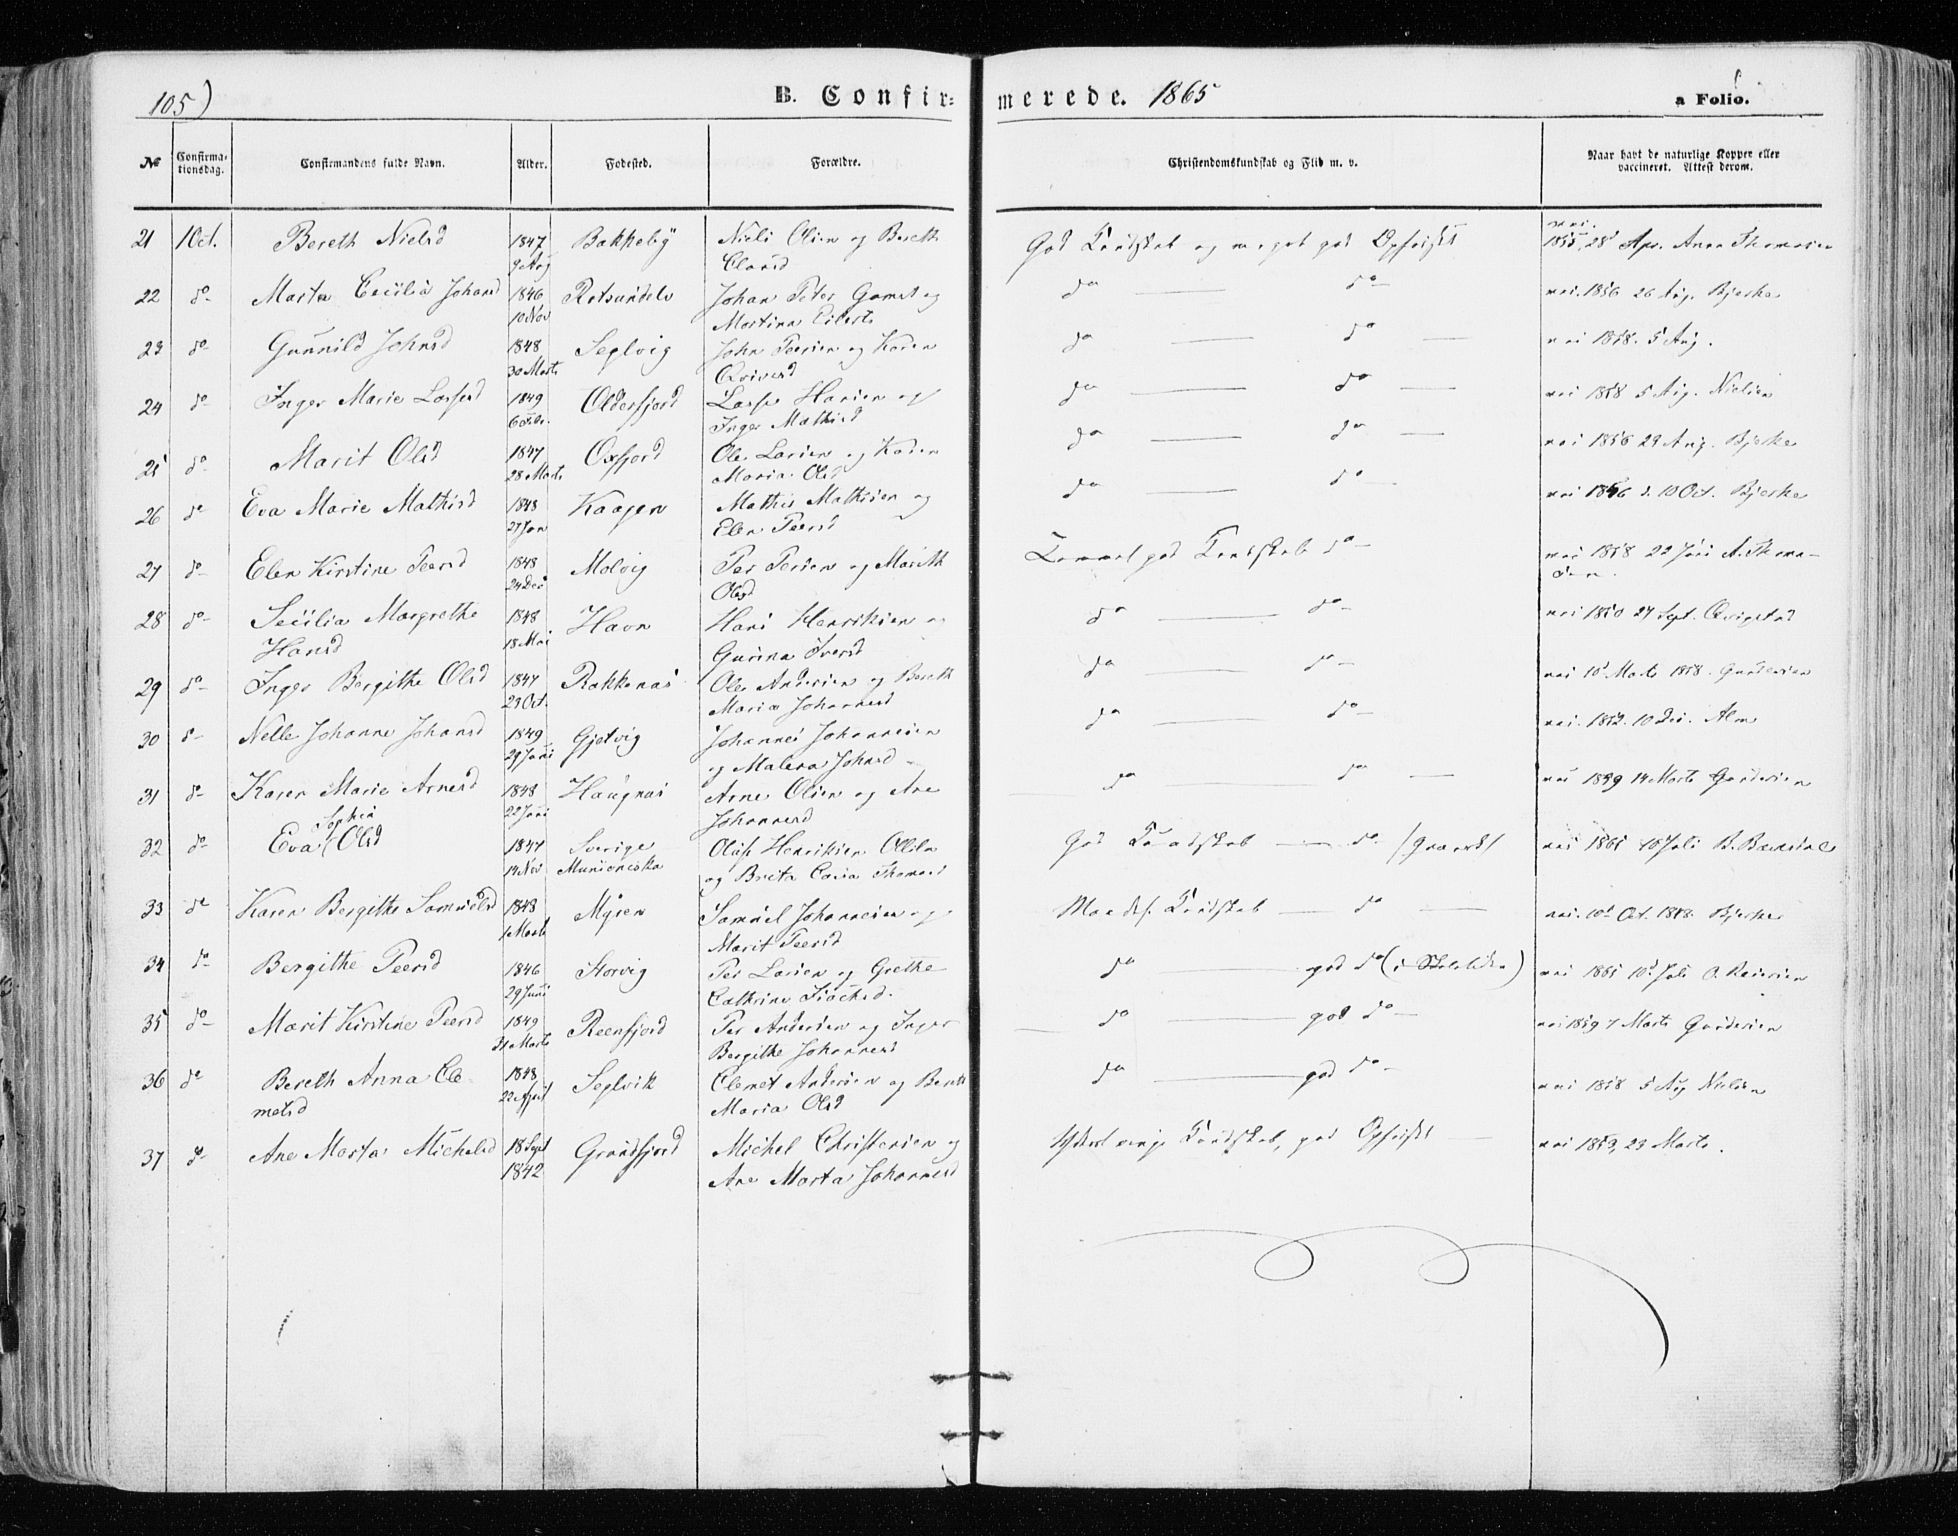 105) B. Confir= merede. 1865 a Folio.
№ Confirma-tionsdag. Confirmandens fulde Navn. Alder. Fodested. Forældre. Christendomskundskab og Flid m. v. Naar havt de naturlige Kopper eller vaccineret. Attest derom.
21 1 Oct. Bereth Nielsd 1847 Bakkeby Niels Olsen og Bereth God Kundskab og meget god Opførsel vac. 1855, 28 Apr. Anna Thomasen
9 Aug Clausd
22 do Marta Cecilia Johansd 1846 Rotsundelv Johan Peter Gamst og do — do vac. 1856 26 Aug. Bjerke
10 Nov Martina Eilerts
23 do Gunnild Johnsd 1848 Seglvig John Peersen og Karen do — do — vac 1858. 5 Aug.
30 Marts
24 do Inger Marie Larsd 1849 Oldersfjord Lars Hansen og do — do — vac 1858 5 Aug. Nielsen
6 Febr. Inger Mathisd
25 do Marit Olsd 1847 Oxfjord Ole Larsen og Karen do — do — vac 1856 29 Aug. Bjerke
28 Marts Maria Olsd
26 do Eva Marie Mathisd 1848 Kaagen Mathis Mathisen og do — do — vac 1856 d. 10 Oct. Bjerke
27 Jan Elen Peersd
27 do Elen Kirstine Peersd 1848 Molvig Per Persen og Marith god Kundskab do — vac 1858 22 Juni A. Thoma-
24 Dec Olsd sen.
28 do Secilia Margrethe 1848 Havn Hans Henriksen og do — do — vac 1850 27 Sept. Qvigstad
Hansd 18 Mai Gurina Iversd
29 do Inger Bergithe Olsd 1847 Rakkenæs Ole Andersen og Bereth do — do — vac 10 Marts 1858. Gundersen
29 Oct. Maria Johannesd
30 do Nelle Johanne Johansd 1849 Gjøtvig Johannes Johannesen do — do — vac. 1852. 10 Dec. Alm
29 Juni og Malena Johnsd
31 do Karen Marie Arnesd 1848 Haugnæs Arne Olsen og Ane do — do — vac 1859 14 Marts Gundersen
22 Juni Johannesd
Sophia
32 do Eva Olsd 1847 Sverige Oluf Henriksen God Kundskab — do vac 1865 10 Juli
14 Nov Munioniska og Brita Caisa Thomasd
33 do Karen Bergithe Samuelsd 1848 Myren Samuel Johannesen og Maadel. Kundskab — do — vac. 10 Oct. 1858. Bjerke
1 Marts Marit Peersd
34 do Bergithe Peersd 1846 Storvig Per Larsen og Grethe do — god do vac 1865 10 Juli O.
29 Juni Cathrine
35 do Marit Kirstine Peersd 1849 Reenfjord Per Andersen og Inger do — god do — vac 1859 7 Marts Gundersen
31 Marts Bergithe Johannesd
36 do Bereth Anna Cle- 1848 Seglvik Clemet Andersen og Bereth do — god do — vac 1858 5 Aug Nielsen
metsd 22 April Maria Olsd
37 do Ane Marta Michelsd 18 Sept Grundfjord Michel Christensen og Yderst ringe Kundskab, god Opførsel — vac 1853, 23 Marts.
1842 Ane Marta Johannesd